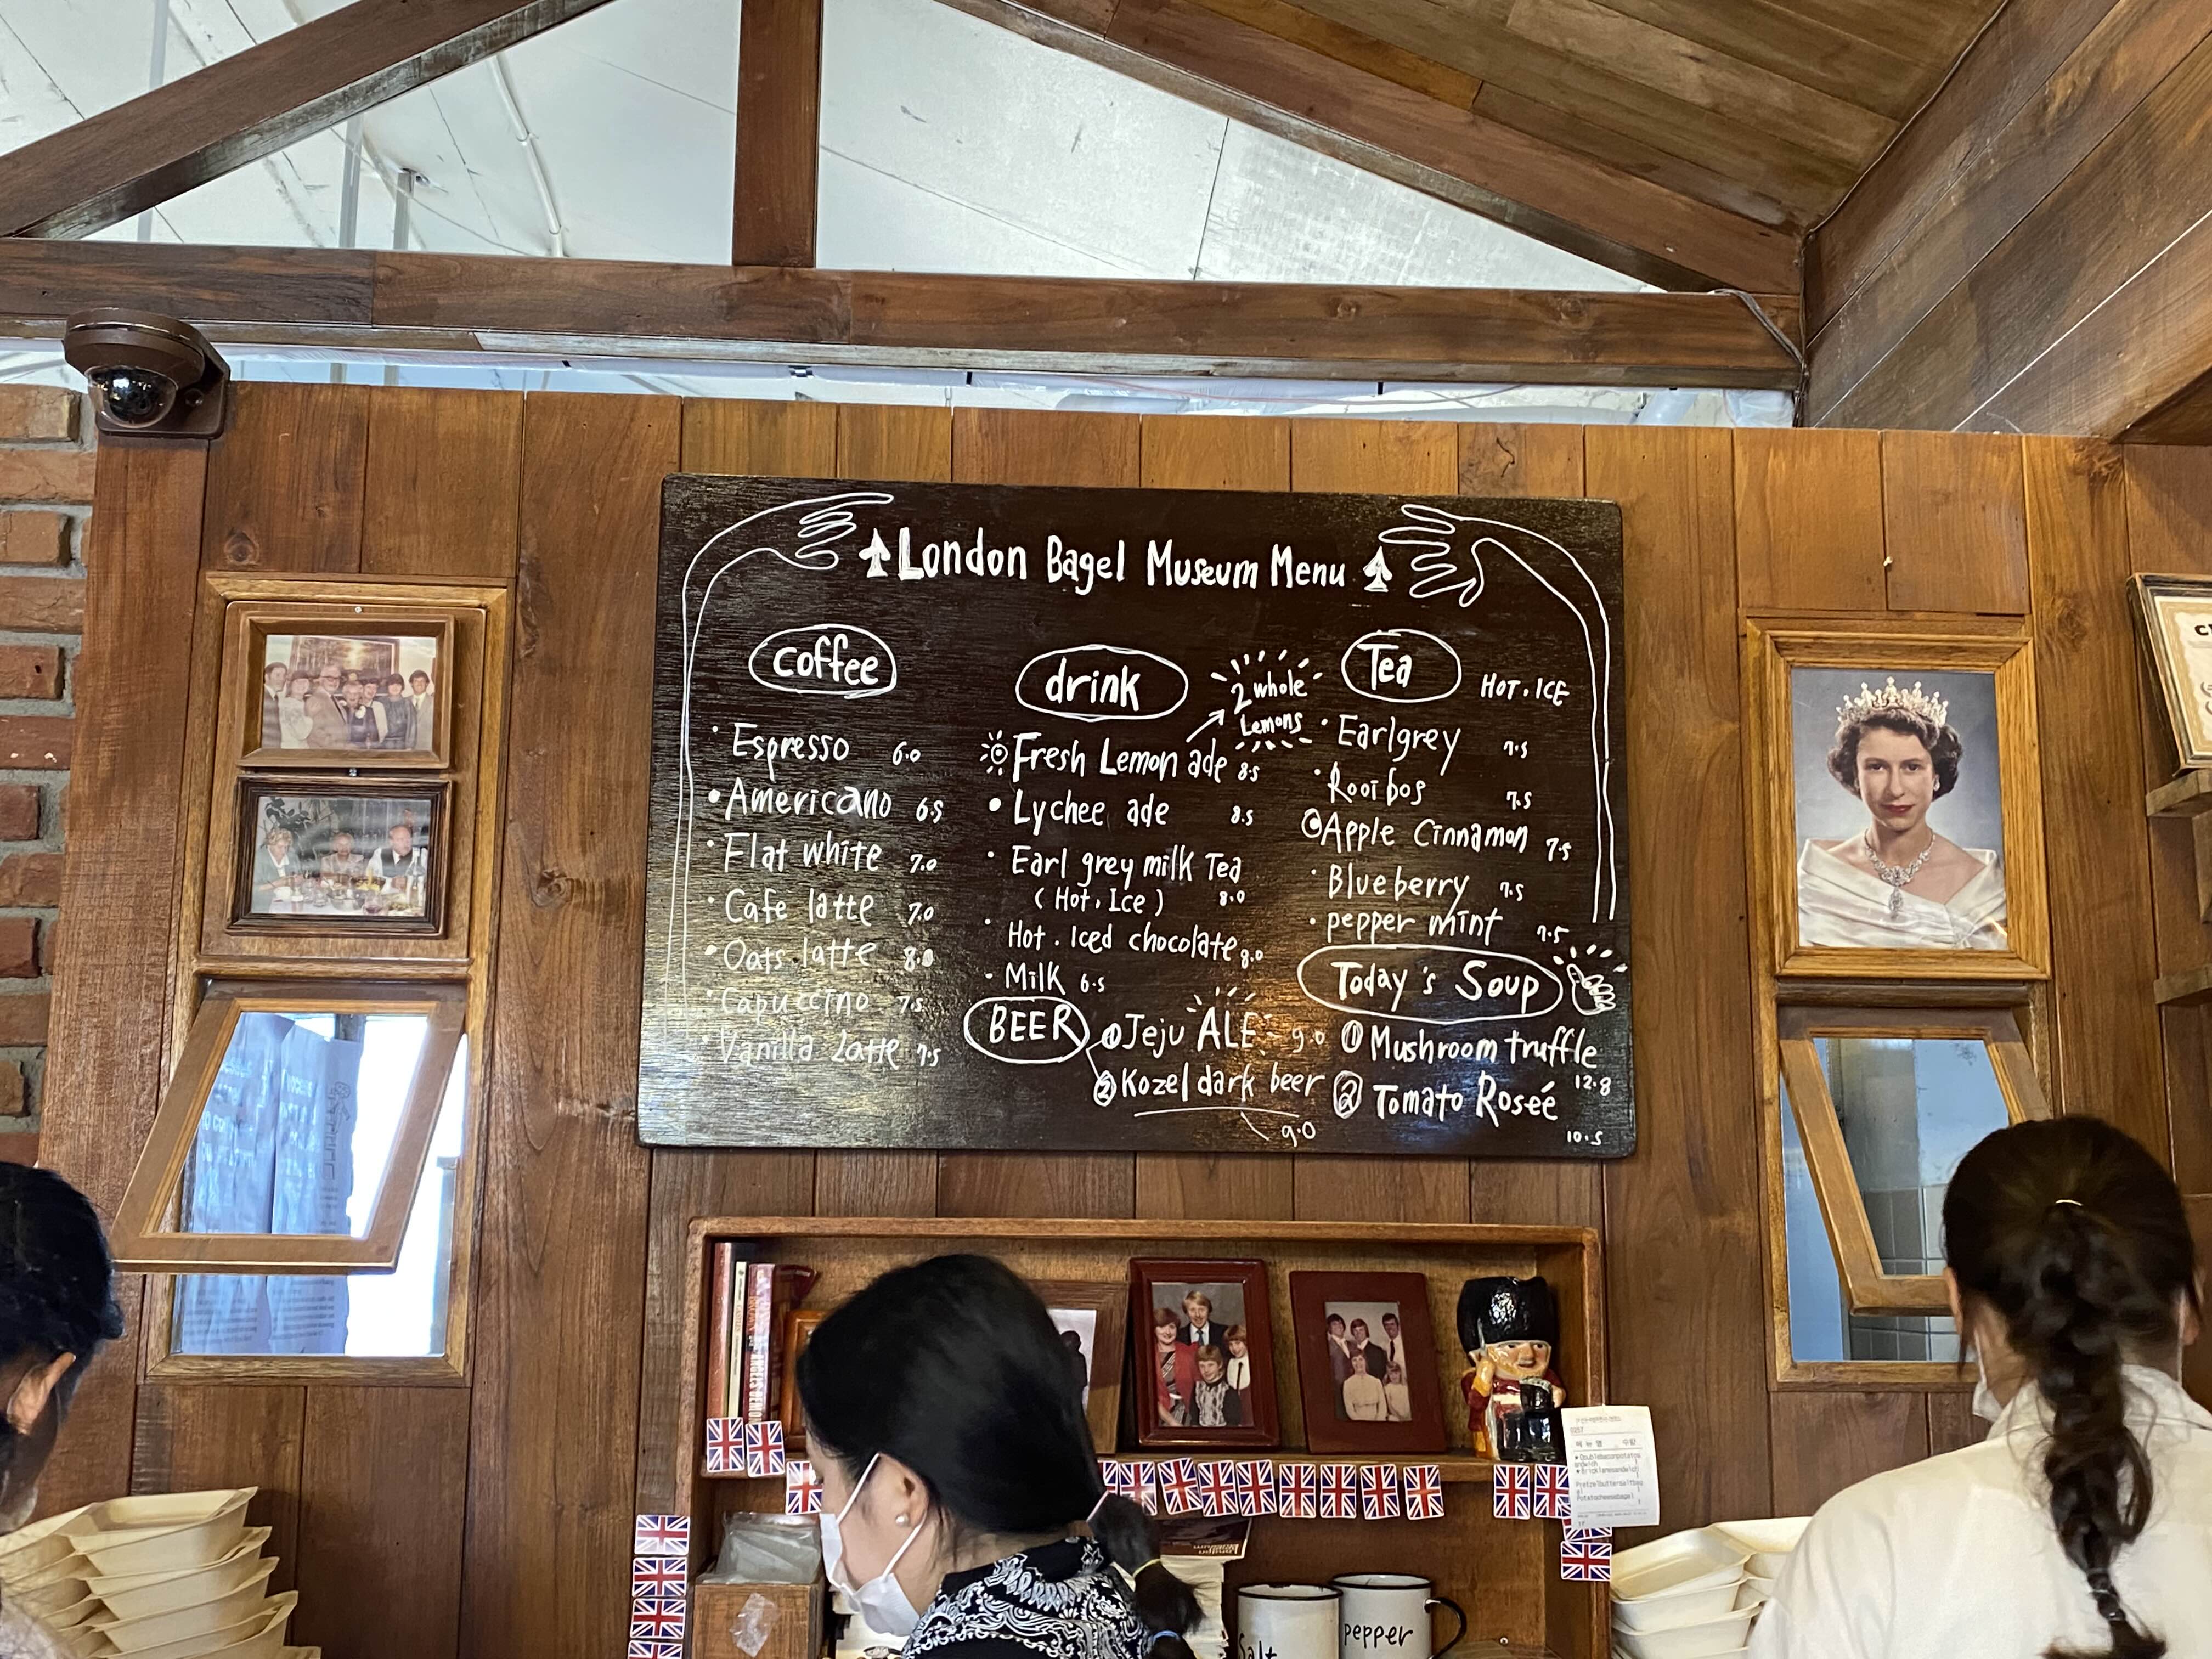 London Bagel Museum Menu
coffee
· Espresso 6.0
• Americano 6.5
· Flat white 7.0
· Cafe latte 7.0
· Oats latte 8.0
· Capuccino 7.5
· Vanilla Latte 7.5
drink
2 whole
Lemons
Fresh Lemon ade 8.5
• Lychee ade 8.5
· Earl grey milk Tea
(Hot, Ice) 8.0
· Hot. Iced chocolate 8.0
· Milk 6.5
BEER
① Jeju ALE 9.0
② Kozel dark beer
9.0
Tea HOT. ICE
· Earlgrey 7.5
· Rooibos 7.5
Apple Cinnamon 7.5
· Blueberry 7.5
· pepper mint 7.5
Today's Soup
① Mushroom truffle
12.8
② Tomato Roseé
10.5
Salt
pepper